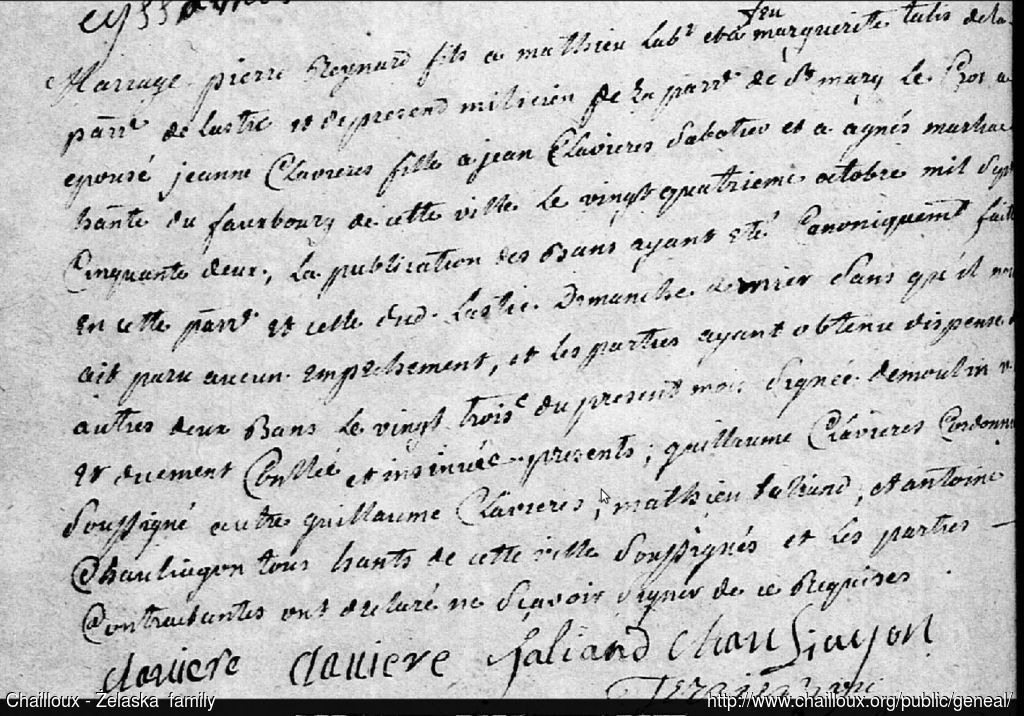 feu
Mariage pierre Reynard fils a mathieu labr et a marguerite talis de la
parre de lastic et de present milicien de la parre de St mary le Cros a
epousé jeanne Clavieres fille a jean Clavieres Sabotier et a agnés
hante du fauxbourg de cette ville le vingt quatrieme octobre mil sept
Cinquante deux, la publication des Bans ayant eté Canoniquemt faite
en cette parre et celle dud. Lastic Dimanche dernier Sans qu'il
ait paru aucun empechement, et les parties ayant obtenu dispense
autres deux Bans le vingt trois du present mois Signée demoulin
et duement Conllée et insinuée presents; guillaume Clavieres
Soussigné autre guillaume Clavieres, mathieu taliand, et antoine
Chauliagon tous hants de cette ville Soussignés et les parties
Contractantes ont declaré ne Sçavoir Signer de ce Requises
claviere claviere taliand chauliagon
Chailloux - Zelaska family
http://www.chailloux.org/public/geneal/